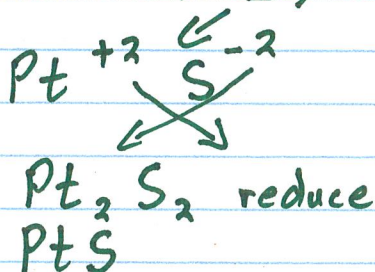 Pt⁺² S⁻²
Pt₂S₂ reduce
PtS